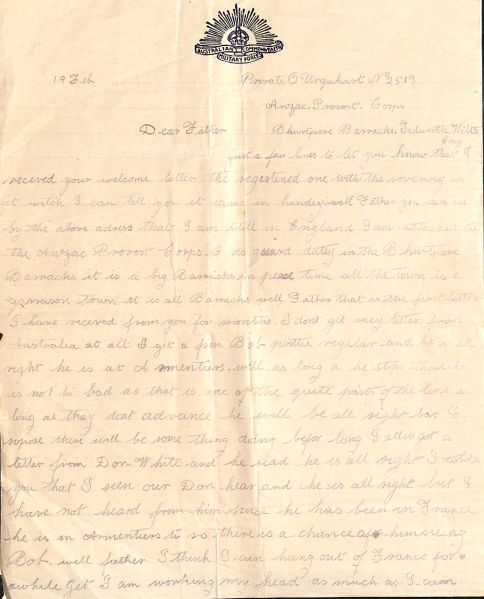 AUSTRALIAN COMMONWEALTH
MILITARY FORCES
19 Feb Private O Urquhart No 2513
Anzac. Provost. Corps
Bhurtpore Barracks. Tidworth. Wilts
Eng
Dear Father
Just a few lines to let you know that I
receved your welcome letter the registened one with the sovering in
it witch I can tell you it came in handey well Father you can see
by the above adress that I am still in England I am attached to
the Anzac Provost Corps to do guard dutey in the Bhurtpore
Barracks it is a big Barracks in peace time all the town is a
garrason town it is all Barracks well Father that is the first letter
I have receved from you for months I dont get aney letters from
Australia at all I get a few Bob writte regular and he is all
right he is at Armentiers well as long a he stops there it
is not to bad as that is one of the quite parts of the line as
long as they dont advance he will be all right but I
supose there will be some thing doing befor long I allso got a
letter from Don White and he said he is all right I told
you that I seen our Don hear and he is all right but I
have not heard from him since he has been in France
he is in Armentiers to so there is a chance of him seeing
Bob. well father I think I can hang out of France for a
awhile yet I am working my head as much as I can